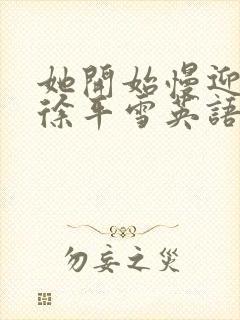 她開始慢迎
徐平雪英語
勿妄之災